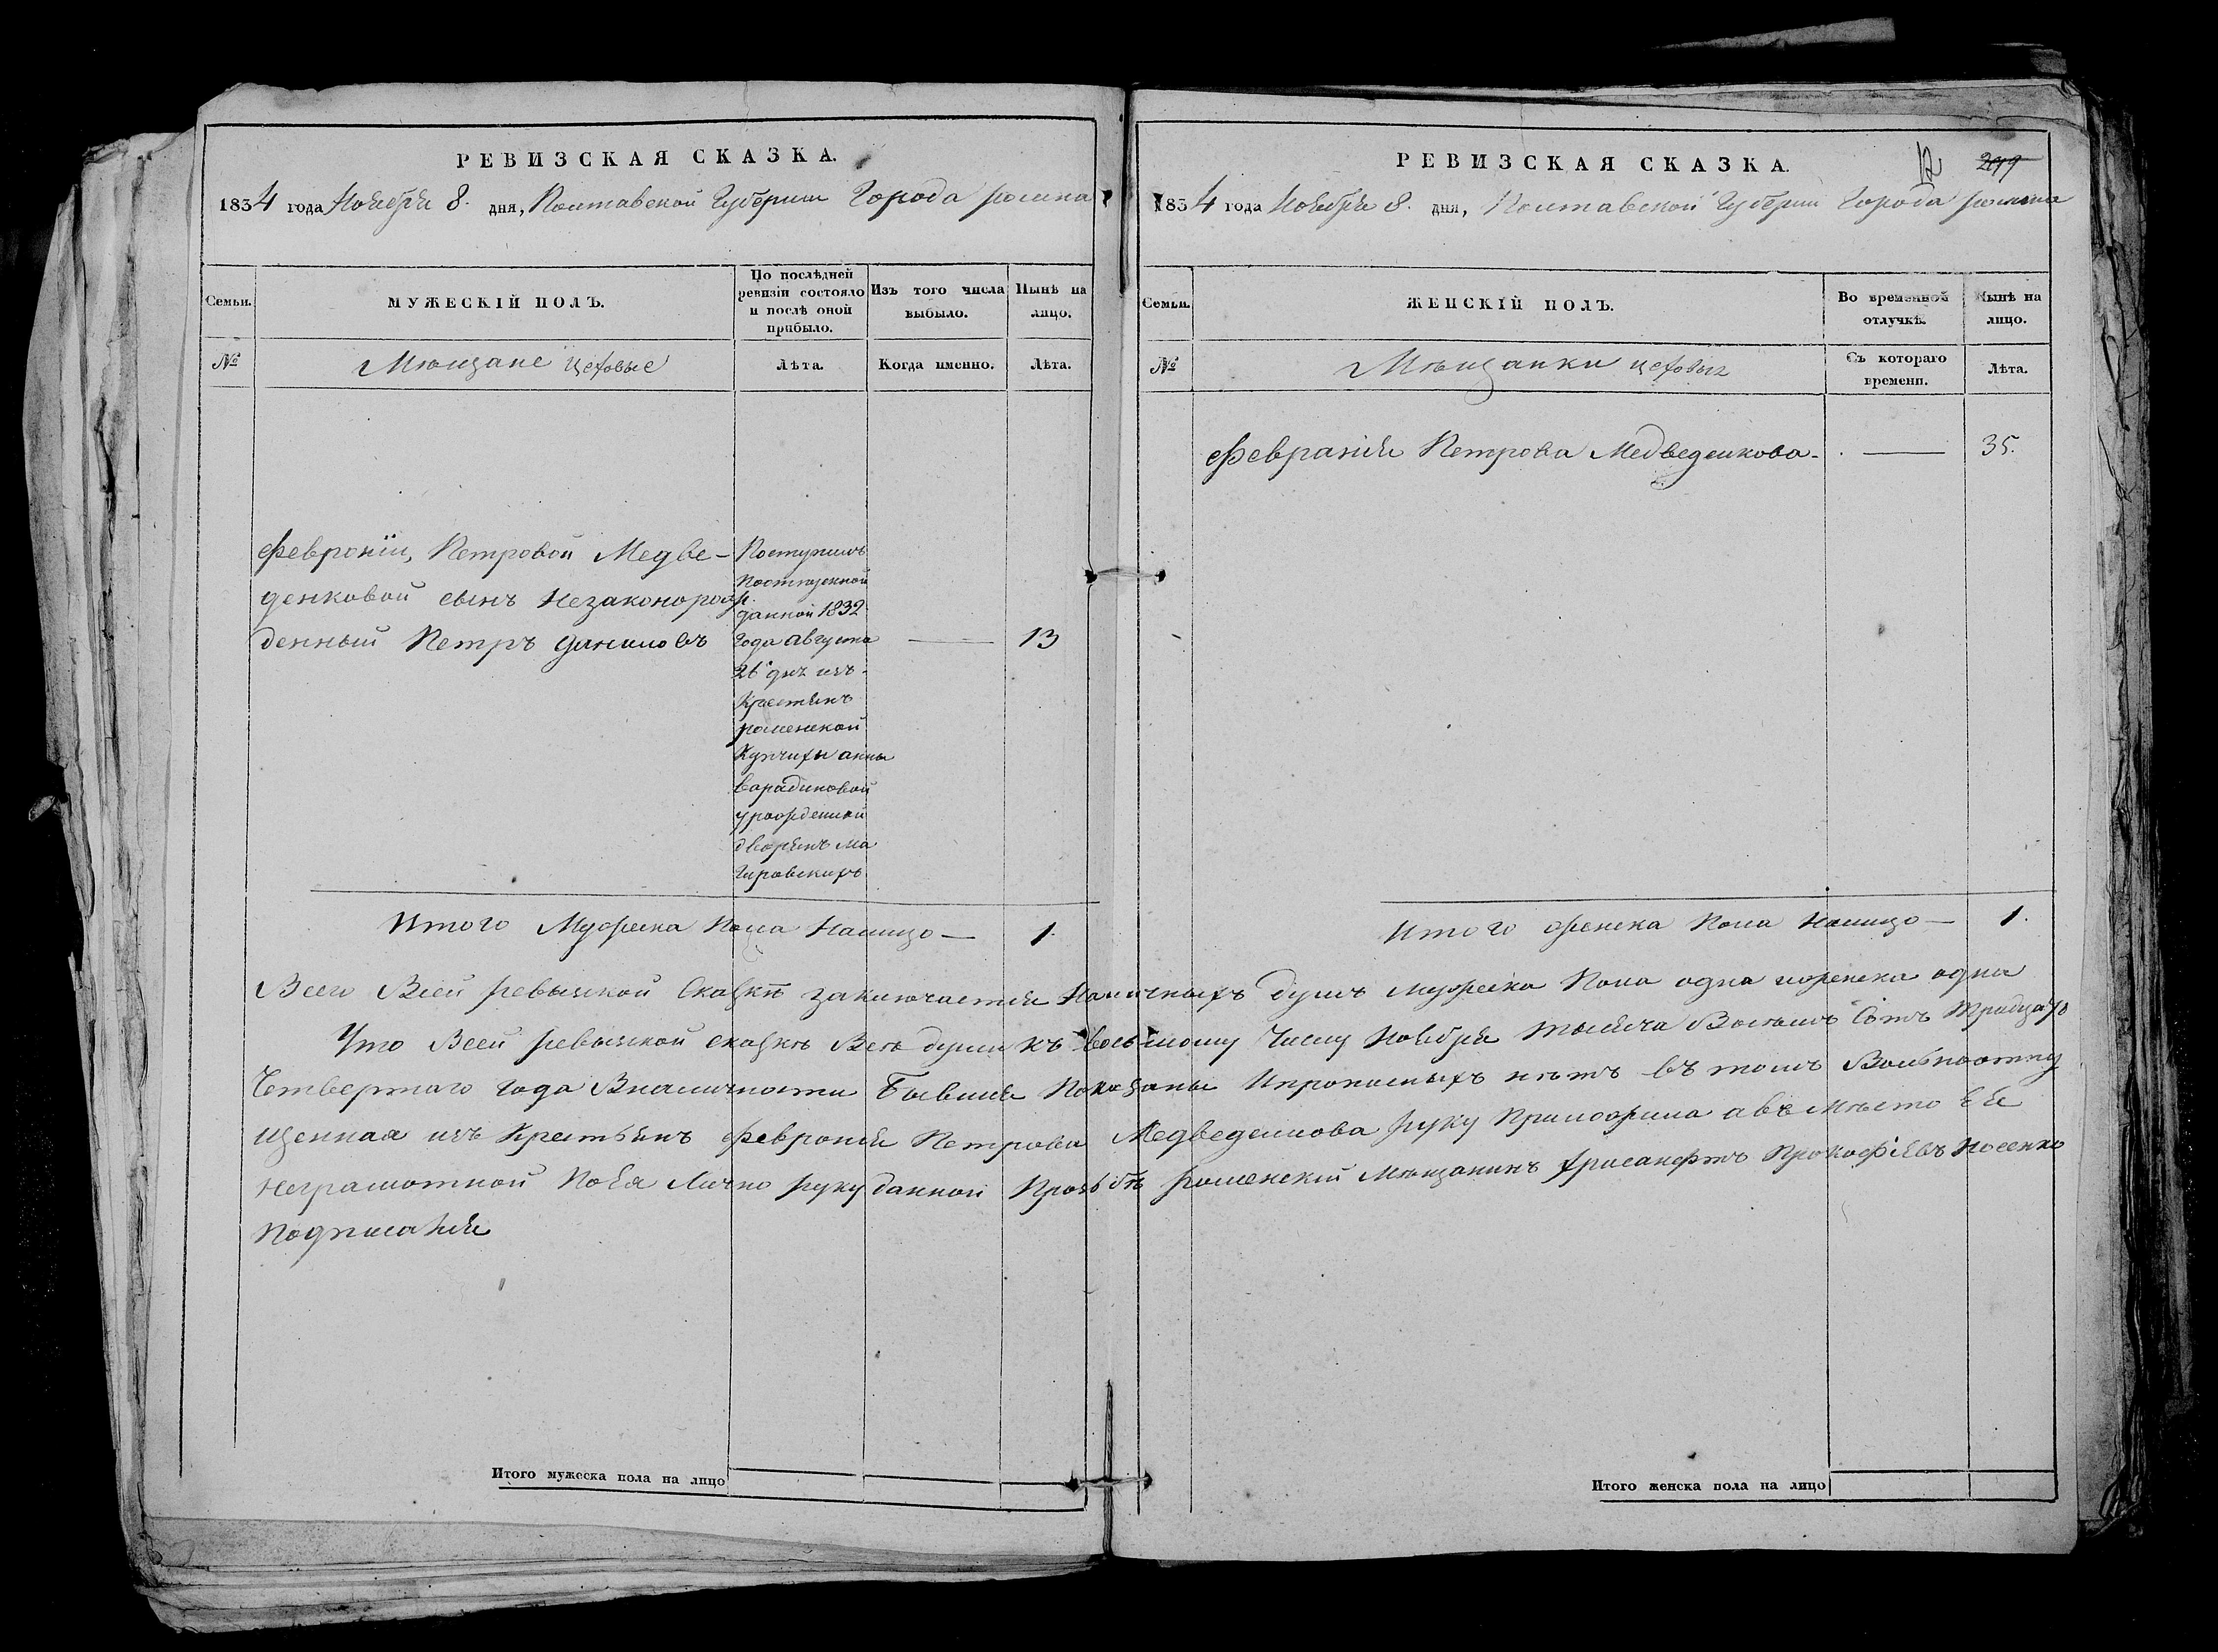 РЕВИЗСКАЯ СКАЗКА.
1834 года Ноября 8. дня, Полтавской Губернии Города ромна
Семьи.
МУЖЕСКІЙ ПОЛЪ.
По послѣдней
ревизіи состояло
и послѣ оной
прибыло.
Изъ того числа
выбыло.
Нынѣ на
лицо.
№
Мѣщане цеховые
Лѣта.
Когда именно.
Лѣта.
Февроніи, Петровой Медве-
денковой сынъ Незаконорож
денный Петръ Даниловъ
Поступилъ
по отпускной
данной 1832
года августа
26 дня изъ
Крестьянъ
роменской
Купчихи анны
варадиновой
урожденной
дворянъ Ма
гировскихъ
13
Итого Мужеска Пола Налицо — 1.
РЕВИЗСКАЯ СКАЗКА.
12 299
1834 года Ноября 8. дня, Полтавской Губернии Города ромна
Семьи.
ЖЕНСКІЙ ПОЛЪ.
Во временной
отлучкѣ.
Нынѣ на
лицо.
№
Мѣщанки цеховыя
Съ котораго
времени.
Лѣта.
Февранія Петрова Медведенкова. — 35.
Итого женска Пола Налицо — 1.
Всего Всей ревызской Сказкѣ заключается Наличныхъ душъ мужеска Пола одна ижренска одна
Что Всей ревызской сказкѣ Всѣ души къ восьмому Числу Ноября тысяча Восемъ Сотъ Тридцать
Четвертаго года Вналичности Бывшія Показаны Ипрописныхъ нѣтъ въ томъ Вольноотпу
щенная изъ Крестьянъ Февронія Петрова Медведенкова руку Приложила авъмѣсто Ея
неграмотной По Ея Лично рукуданной Прозьбѣ роменскій Мѣщанинъ Хрисанфтъ Прокофіевъ Носенко
Подписался
Итого мужеска пола на лицо
Итого женска пола на лицо